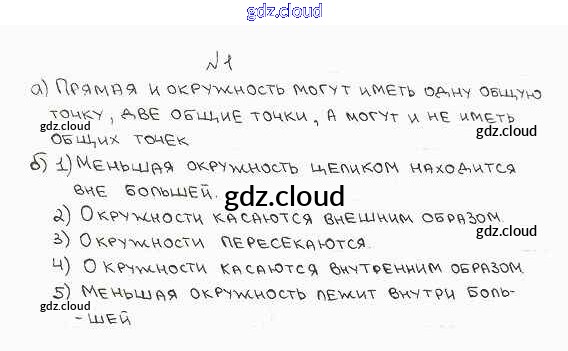 gdz.cloud
№1
а) Прямая и окружность могут иметь одну общую
точку, две общие точки, а могут и не иметь
gdz.cloud
gdz.cloud
общих точек
б) 1) Меньшая окружность целиком находится
вне большей.
gdz.cloud
2) Окружности касаются внешним образом
gdz.cloud
3) Окружности пересекаются.
4) Окружности касаются внутренним образом
5) Меньшая окружность лежит внутри боль-
gdz.cloud
-шей